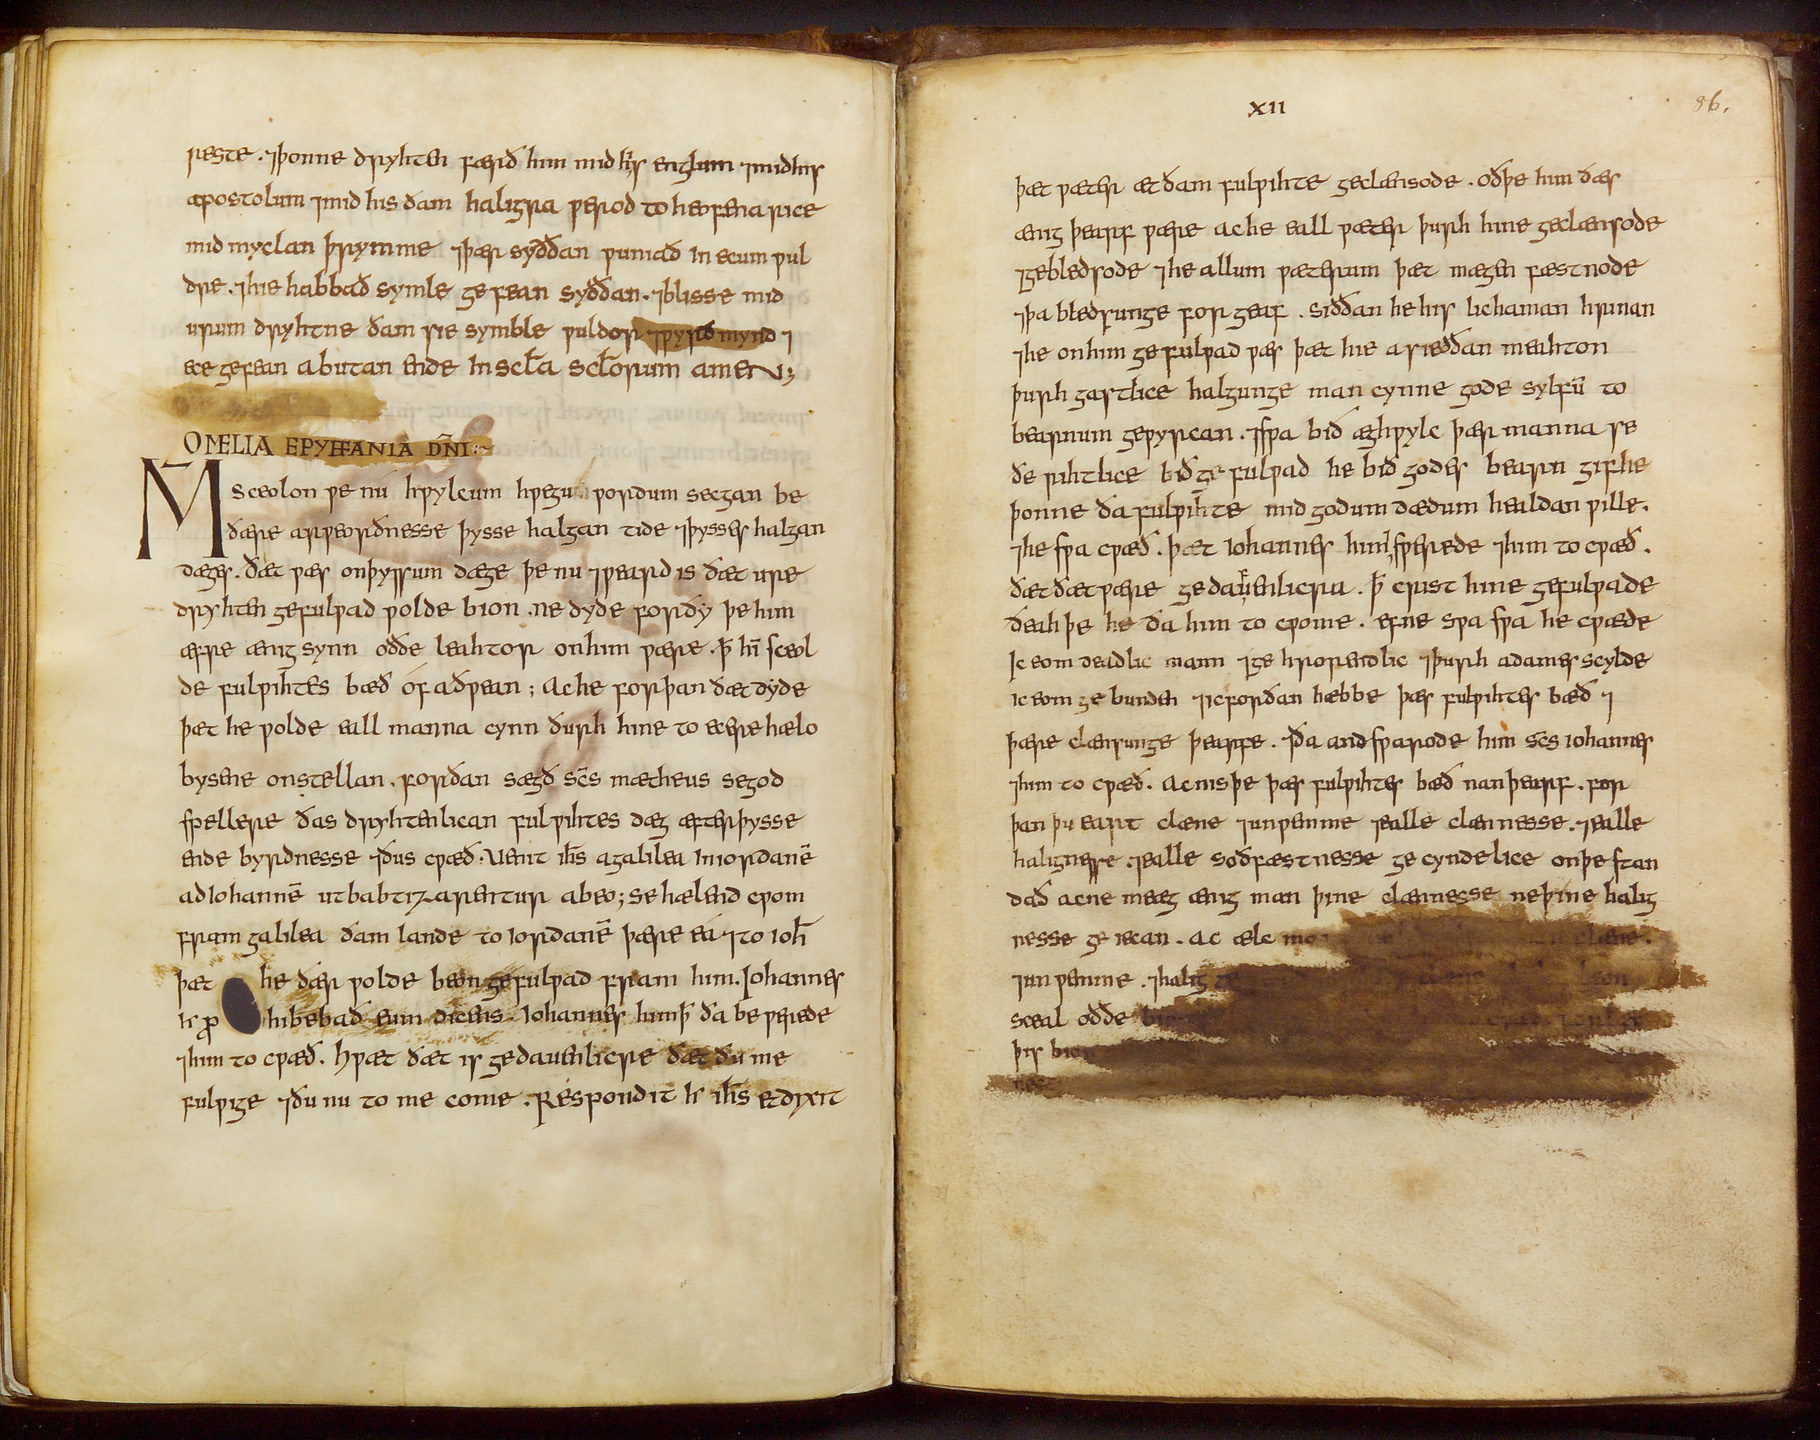 reste . ⁊þonne dryhten færið him mid his englum ⁊midhis
apostolum ⁊mid his ðam haligra ƿerod to heofena rice
mid myclan þrymme ⁊þær syððan ƿuniað in ecum ƿul
dre . ⁊hie habbað symle gefean syððan . ⁊blisse mid
urum dryhtne ðam sie symble ƿuldor ⁊ƿyrðmynd ⁊
ece gefean abutan ende in scl̄a scl̄orum amen;
OMELIA EPYFFANIA DN̄I :~
M sceolon ƿe nu hƿylcum hƿegu ƿordum secgan be
ðære arƿeorðnesse þysse halgan tide ⁊þysses halgan
dæges . ðæt ƿæs onþyssum dæge þe nu ⁊ƿeard is ðæt ure
dryhten gefulƿad ƿolde bion . ne dyde forðy þe him
æfre ænig synn oððe leahtor onhim ƿære . ꝥ hī sceol
de fulƿihtes bæð of aðƿean ; Ac he forþan ðæt dyde
þæt he ƿolde eall manna cynn ðurh hine to ecere hælo
bysene onstellan . forðan sægð scs̄ matheus segod
spellere ðas dryhtenlican fulƿihtes dæg æfterþysse
ende byrdnesse ⁊ðus cƿæð . Uenit ihs̄ agalilea iniordanē
adiohannē utbabtizarentur abeo ; se hælend cƿom
fram galilea ðam lande to iordanē þære ea ⁊to ioh̄
þæt he ðær ƿolde beon gefulƿad fram him . Iohannes
hr̄ ꝓ hibebad eum dicens . Iohannes himꝥ ða be ƿerede
⁊him to cƿæð . Hƿæt ðæt is gedauenlicre ðæt ðu me
fulƿige ⁊ðu nu to me come . Respondit hr̄ ihs̄ etdixit
XII
86.
þæt ƿæter æt ðam fulƿihte geclænsode . oðþe him ðæs
ænig þearf ƿære ac he eall ƿæter þurh hine geclænsode
⁊gebledsode ⁊he allum ƿæterum þæt mægen fæstnode
⁊þa bledsunge for geaf . siððan he his lichaman hrinan
⁊he onhim gefulƿad ƿæs þæt hie a sieððan meahton
þurh gastlice halgunge man cynne gode sylfū to
bearnum geƿyrcan . ⁊sƿa bið æghƿylc þær manna se
ðe rihtlice bið ge fulƿad he bið godes bearn gif he
þonne ða fulƿihte mid godum dædum healdan ƿille .
⁊he sƿa cƿæð . þæt Iohannes him ꝥ sƿerede ⁊him to cƿæð .
ðæt ðæt ƿære gedauenlicra . ꝥ crist hine gefulƿade
ðeah þe he ða him to cƿome . efne sƿa sƿa he cƿæde
Ic eom deadlic mann ⁊ge hrorendlic ⁊þurh adames scylde
ic eom ge bunden ⁊icforðan hæbbe þæs fulƿihtes bæð ⁊
þære clænsunge þearfe . ⁊ða andsƿarode him scs̄ iohannes
⁊him to cƿæð . Ac nis þe þæs fulƿihtes bæð nan þearf . for
þan þu eart clæne ⁊unƿemme ⁊ealle clænnesse . ⁊ealle
halignesse . ⁊ealle soðfæstnesse ge cyndelice onþe stan
dað ac ne mæg ænig man þine clænnesse ne þine halig
nesse ge iecan . Ac ælc
⁊unƿemme . ⁊halig
sceal oððe
þis